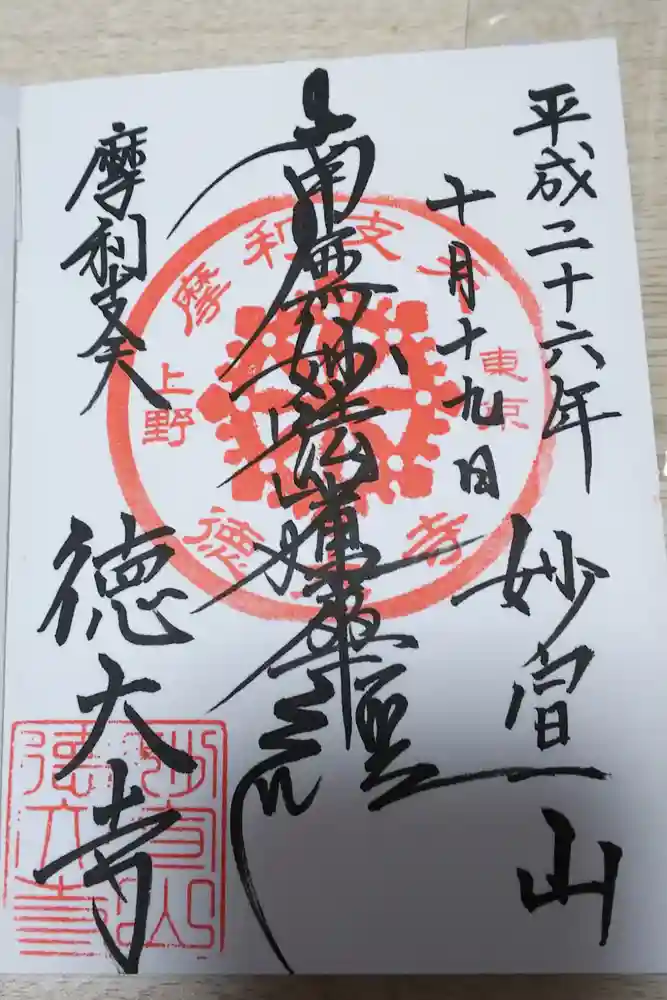 平成二十六年
十月十九日
妙宣山
南無妙法蓮華經
摩利支天
徳大寺
摩利支天
東京
上野
徳大寺
妙宣山
徳大寺